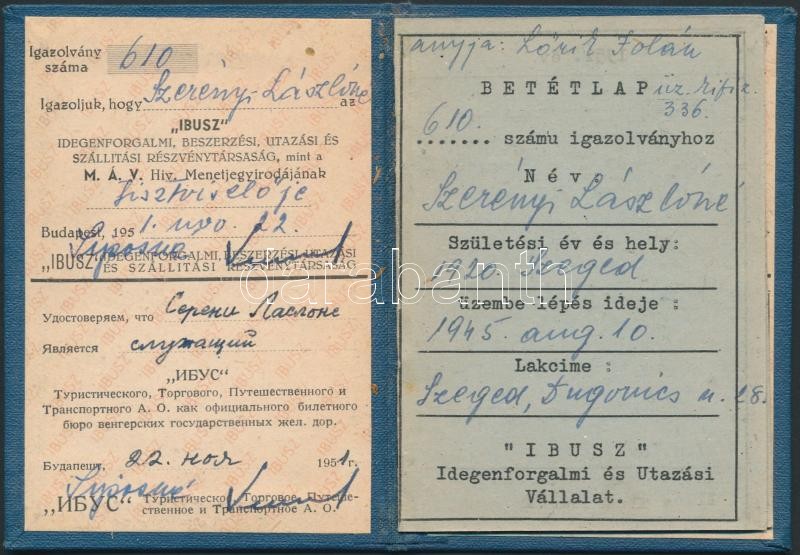 Igazolvány
száma 610
Igazoljuk, hogy Szerényi Lászlóné az
„IBUSZ"
IDEGENFORGALMI, BESZERZÉSI, UTAZÁSI ÉS
SZÁLLITÁSI RÉSZVÉNYTÁRSASÁG, mint a
M. Á. V. Hiv. Menetjegyirodájának
tisztviselője
Budapest, 1951. nov. 22.
„IBUSZ" IDEGENFORGALMI, BESZERZÉSI, UTAZÁSI
ÉS SZÁLLITÁSI RÉSZVÉNYTÁRSASÁG
Удостоверяем, что Серени Ласлоне
Является служащий
„ИБУС"
Туристического, Торгового, Путешественного и
Транспортного А. О. как официального билетного
бюро венгерских государственных жел. дор.
Будапешт, 22. ноя 1951 г.
„ИБУС" Туристическое, Торговое, Путеше-
ственное и Транспортное А. О.
anyja: Lőrik Jolán
BETÉTLAP
336.
610. számu igazolványhoz
Név:
Szerényi Lászlóné
Születési év és hely:
1920. Szeged
üzembe lépés ideje :
1945. aug. 10.
Lakcime :
Szeged, Dugonics u. 28.
"IBUSZ"
Idegenforgalmi és Utazási
Vállalat.
darabanth